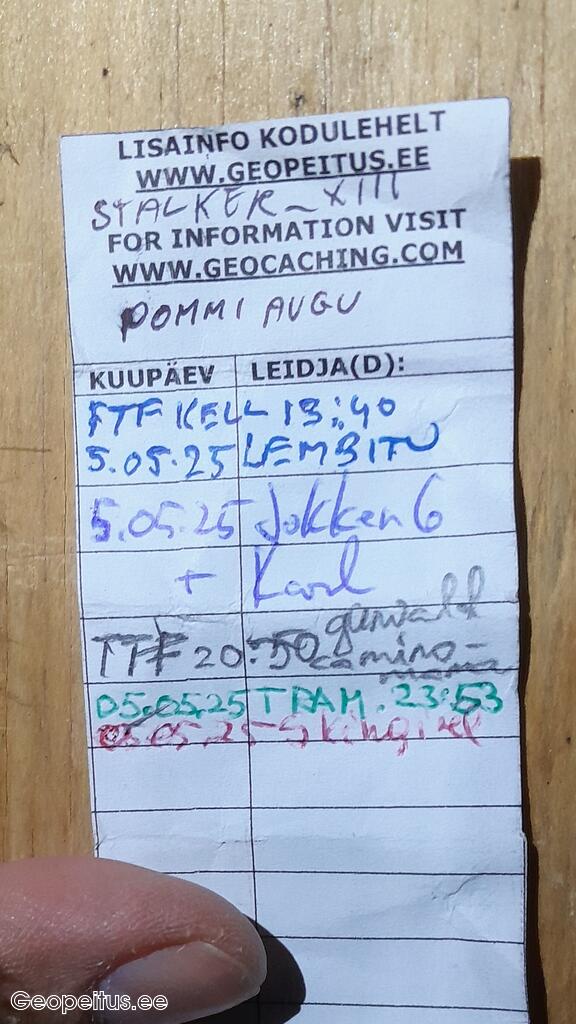 LISAINFO KODULEHELT
WWW.GEOPEITUS.EE
STALKER_XIII
FOR INFORMATION VISIT
WWW.GEOCACHING.COM
POMMI AUGU
KUUPÄEV LEIDJA(D):
FTF KELL 13:40
5.05.25 LEMBITU
5.05.25 Jokker6
+ Karl
TTF 20:50
05.05.25 TRAM. 23:53
05.05.25
Geopeitus.ee